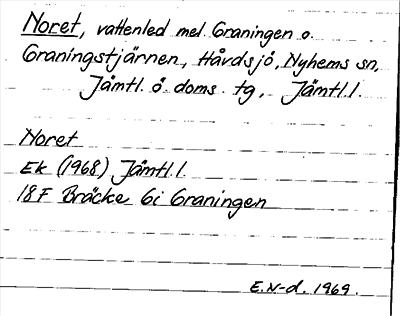 Noret, vattenled mel. Graningen o.
Graningstjärnen, Håvdsjö, Nyhems sn,
Jämtl. ö. doms. tg, Jämtl. l.
Noret
Ek (1968) Jämtl. l.
18F Bräcke 6i Graningen
E.N-d. 1969.